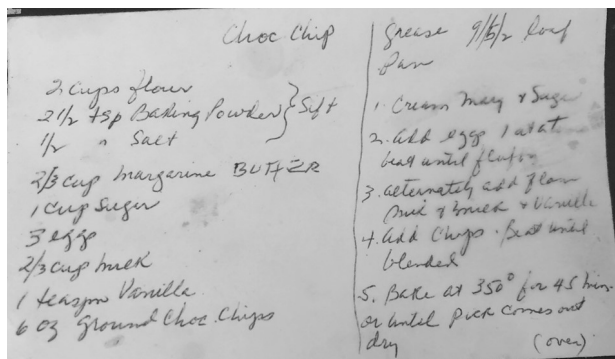 Choc Chip
2 Cups flour
2 1/2 tsp Baking Powder } Sift
1/2 " Salt
2/3 cup Margarine BUTTER
1 Cup Sugar
3 eggs
2/3 cup milk
1 teaspn Vanilla
6 oz Ground Choc. Chips
Grease 9/5/2 loaf
Pan
1. Cream Marg & Sugar
2. add eggs 1 at a time
beat until fluffy
3. alternately add flour
& milk & Vanilla
4. add Chips. Beat until
blended
5. Bake at 350° for 45 min.
or until pick comes out
dry (over)